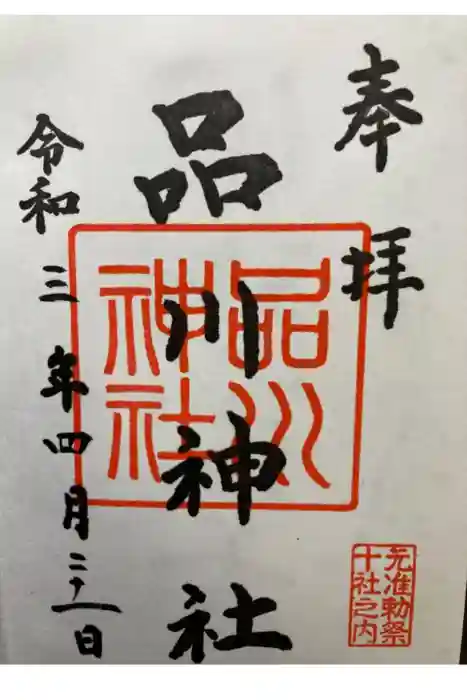 奉拝
品川神社
令和三年四月二十一日
品川
神社
元准勅祭
十社之内